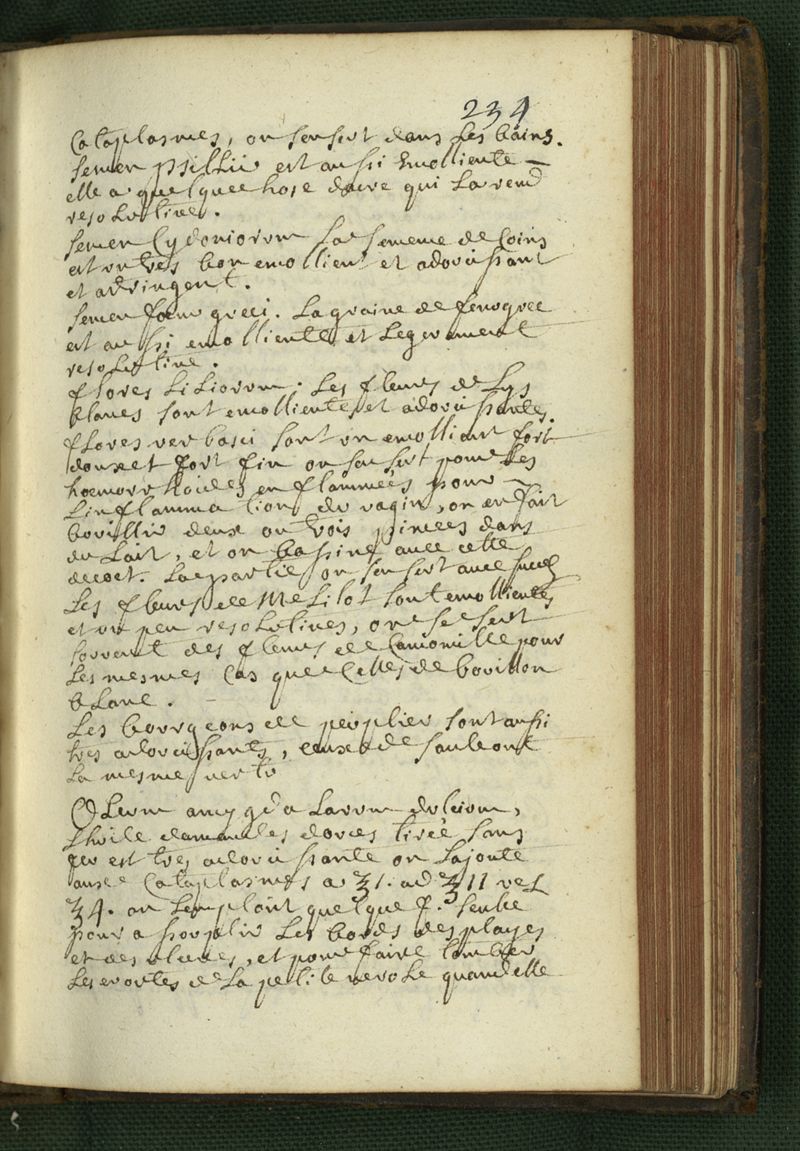 234
Cataplasmes, on sen sert dans Les bains.
semen psillii est aussi Emolliente
elle a quelque chose dacre qui La rend
resolutive.
semen Cydoniorum La semence de Coins
est un tres bon emollient et adoucissant
et astringent.
semen foenu greci. La graine de fenugrec
est aussi emolliente et Legerement
resolutive.
flores Liliorum. Les fleurs de Lys
blancs sont emollientes et adoucissantes.
flores verbasci sont un emolliant fort
doux et fort fin on sen sert pour Les
hoemorrhoides enflammées pour
Linflammation du vagin, on en fait
bouillir deux ou trois pincées dans
du Lait, et on bassine avec cette
decoct. La partie on sen sert avec succes
Les fleurs de Melilot sont emollientes
et un peu resolutives, on se sert
souvent des fleurs de Camomille pour
Les mesmes Cas que Celles de bouillon
blanc.
Les bourgeons de peuplier sont aussi
tres adoucissants, ceux de saule ont
La mesme vertu
Oleum amygda Larum dulcium,
Lhuile damandes douces tirée sans
feu est tres adoucissante on Lajoute
aux Cataplasmes a ʒ1. ad ʒ11 vel
ʒ4. on Lemploit quelque f. seule
pour assouplir Les bords des playes
et des ulceres, et pour faire tomber
Les croutes de La petite verole quand elle